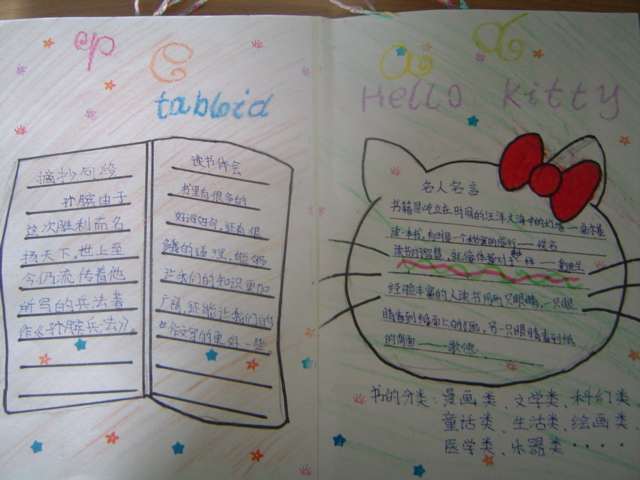 tabloid
Hello Kitty
摘抄句段
孙膑由于
这次胜利而名
扬天下,世上至
今仍流传着他
所写的兵法著
作《孙膑兵法》。
读书体会
书里有很多的
好词好句,还有很
多的道理,他能
让我们的知识更加
广阔,还能让我们的
作文写的更好一些
名人名言
书籍是屹立在时间的汪洋大海中的灯塔
读一本书
经验丰富的人读书用两只眼睛,一只眼
睛看到纸面上的话,另一只眼睛看到纸
的背面——歌德
书的分类:漫画类、文学类、科幻类、
童话类、生活类、绘画类、
医学类、乐器类····